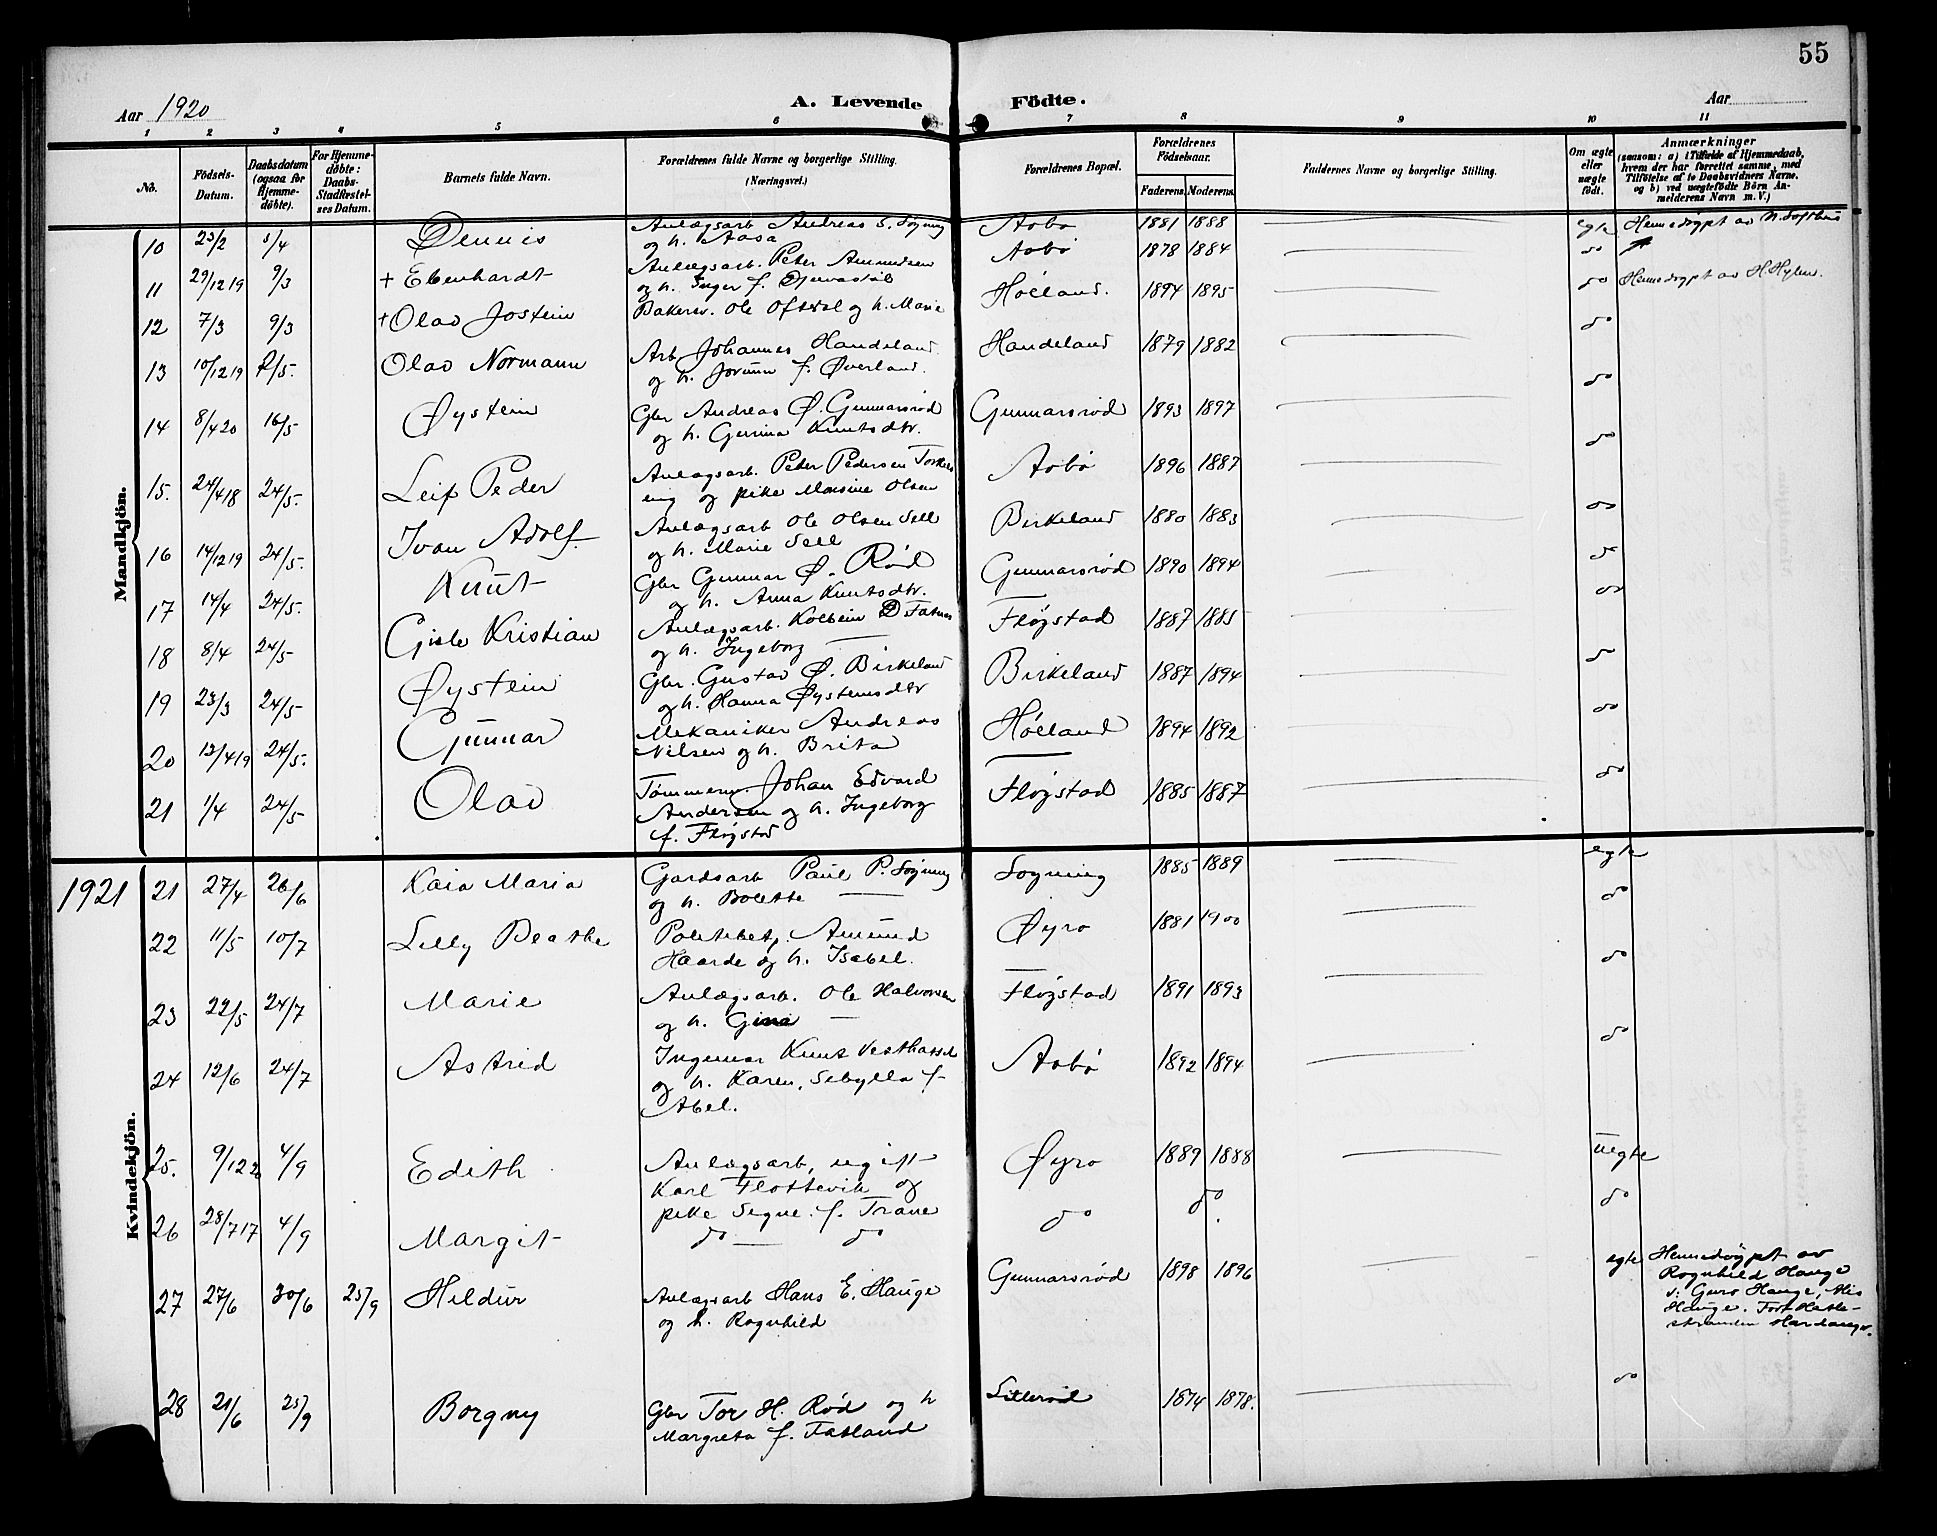 55
Aar 1920
A. Levende Födte.
Aar
1 2 3 4 5 6 7 8 9 10 11
No. Födsels-Datum. Daabsdatum (ogsaa for Hjemmedöbte). For Hjemmedöbte: Daabs-Stadfæstelses Datum. Barnets fulde Navn. Forældrenes fulde Navne og borgerlige Stilling. (Næringsvei.) Forældrenes Bopæl. Forældrenes Födselsaar. Faderens. Moderens. Faddernes Navne og borgerlige Stilling. Om ægte eller uægte födt. Anmærkninger (saasom: a) i Tilfælde af Hjemmedaab, hvem der har forrettet samme, med Tilföielse af to Daabsvidners Navne, og b) ved uægtefödte Börn Anmelderens Navn m. V.)
Mandkjön.
10 23/2 5/4 Dennis Anlægsarb Andreas S. Søgning og h. Aasa Aabø 1881 1888 egte Hemedøypt av N. Softhus
11 29/12 19 9/3 + Ebenhardt Anlægsarb. Peter Amundsen og h. Inger f. Aabø 1878 1884 do
12 7/3 9/3 + Olav Jostein Bakersv. Ole Oftedal og h. Marie Høiland. 1894 1895 do Hemedøypt av H. Hylen.
13 10/12 19 2/5. Olav Normann Arb. Johannes Handeland og h. Jorunn f. Øverland. Handeland 1879 1882 do
14 8/4 20 16/5 Øystein Gbr Andreas Ø. Gunnarsrød og h. Gurina Knutsdtr. Gunnarsrød 1893 1897 do
15. 24/4 18 24/5. Leif Peder Anlægsarb. Peter Pedersen og pike Marsine Olsen Aabø 1896 1887 do
16 14/12 19 24/5. Ivan Adolf Anlægsarb Ole Olsen Sell og h. Marie Sell Birkeland 1880 1883 do
17 14/4 24/5. Knut Gbr Gunnar Ø. Rød og h. Anna Knutsdtr. Gunnarsrød 1890 1894 do
18 8/4 24/5 Gisle Kristian Anlægsarb. Kolbein og h. Ingeborg Fløgstad 1887 1885 do
19 23/3 24/5 Øystein Gbr. Gustav Ø. Birkeland og h. Hanna Øysteinsdtr Birkeland 1887 1894 do
20 13/4 19 24/5. Gunnar Mekaniker Andreas Nilsen og h. Brita Høiland 1894 1892 do
21 1/4 24/5 Olav Tømmerm. Johan Edvard Andersen og h. Ingeborg f. Fløgstad Fløgstad 1885 1887 do
1921
Kvindekjön.
21 27/4 26/6 Kaia Maria Gardsarb Paul P. Søgning og h. Bolette Sogning 1885 1889 egte
22 11/5 10/7 Lilly Beathe Politibetj. Amund Haarde og h. Isabel. Øyro 1881 1900 do
23 22/5 24/7 Marie Anlægsarb. Ole Halvorsen og h. Gina Fløgstad 1891 1893 do
24 12/6 24/7 Astrid Ingeniør Knut Vesthassel og h. Karen, Sebylla f. Abel. Aabø 1892 1894 do
25. 9/12 20 4/9 Edith Anlægsarb, ugift Karl Flottevik og pike Signe. f. Trane Øyro 1889 1888 uegte
26 28/7 17 4/9 Margit do do do do do
27 27/6 30/6 25/9 Hildur Anlægsarb Hans E. Hauge og h. Ragnhild Gunnarsrød 1898 1896 egte Hemedøypt av Ragnhild Hauge v: Guro Hauge, Nis Hauge. Tort Hatlestranden Hardanger.
28 21/6 25/9 Borgny Gbr Tor H. Rød og h Margreta f. Fatland Litlerød 1874 1878. do